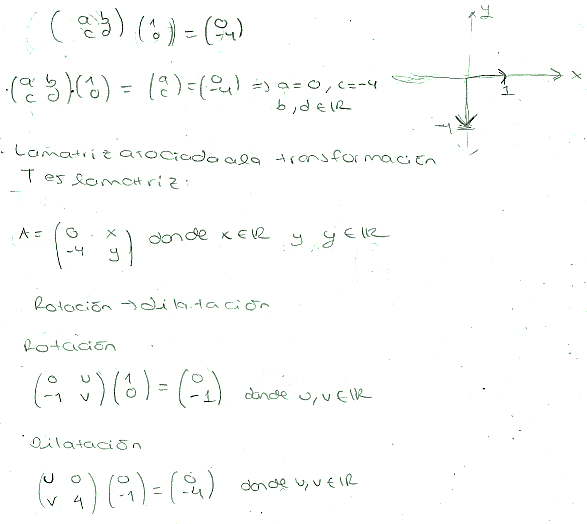 (a b
c d) (1
0) = (0
-4)
y
x
1
-4
(a b
c d)·(1
0) = (a
c) = (0
-4) => a=0, c=-4
b, d ∈ IR
La matriz asociada a la transformación
T es la matriz:
A = (0 x
-4 y) donde x ∈ IR y y ∈ IR
Rotación → dilatación
Rotación
(0 u
-1 v) (1
0) = (0
-1) donde u, v ∈ IR
Dilatación
(u 0
v 4) (0
-1) = (0
-4) donde u, v ∈ IR